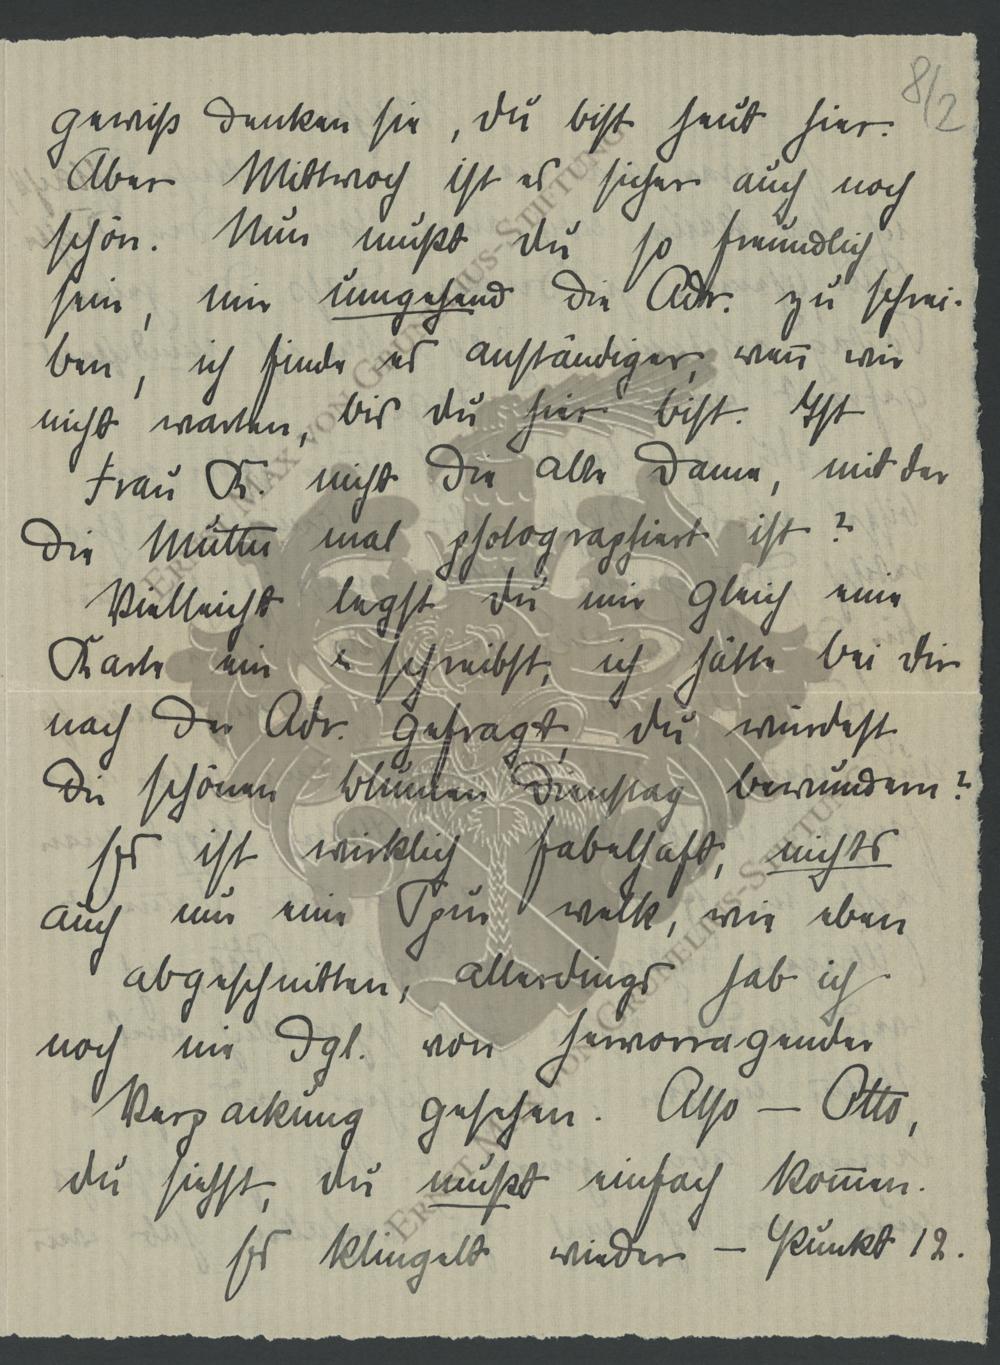 8/2
gewiß denken sie, du bist heut hier.
Aber Mittwoch ist es sicher auch noch
schön. Nun mußt du so freundlich
sein, mir umgehend die Adr. zu schrei-
ben, ich finde es anständiger, wen̄ wir
nicht warten, bis du hier bist. Ist
Frau K. nicht die alte Dame, mit der
die Mutter mal photographiert ist?
Vielleicht legst du mir gleich eine
Karte ein & schreibst, ich hätte bei dir
nach der Adr. gefragt, du würdest
die schönen Blumen Dienstag bewundern?
Es ist wirklich fabelhaft, nichts
auch nur eine Spur welk, wie eben
abgeschnitten, allerdings hab ich
noch nie dgl. von hervorragender
Verpackung gesehen. Also — Otto,
du siehst, du mußt einfach kom̄en.
Es klingelt wieder — Punkt 12.
ERNST MAX VON GRUNELIUS-STIFTUNG